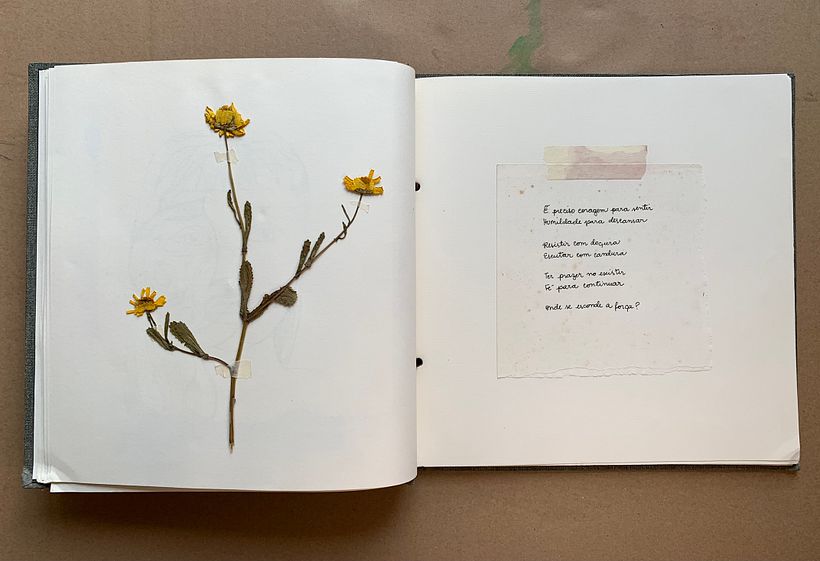 É preciso coragem para sentir
Humildade para descansar
Resistir com doçura
Escutar com candura
Ter prazer no existir
Fé para continuar
Onde se esconde a força?